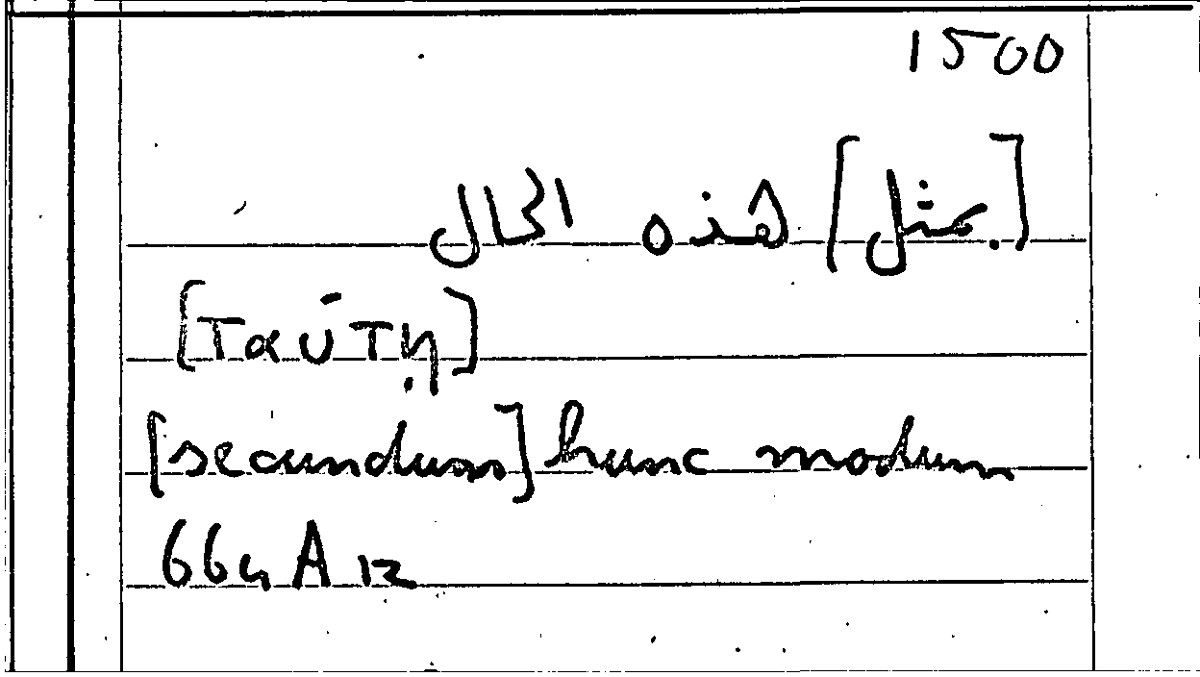 1500
[بمثل] هذه الحال
[ταύτῃ]
[secundum] hunc modum
664 A 12